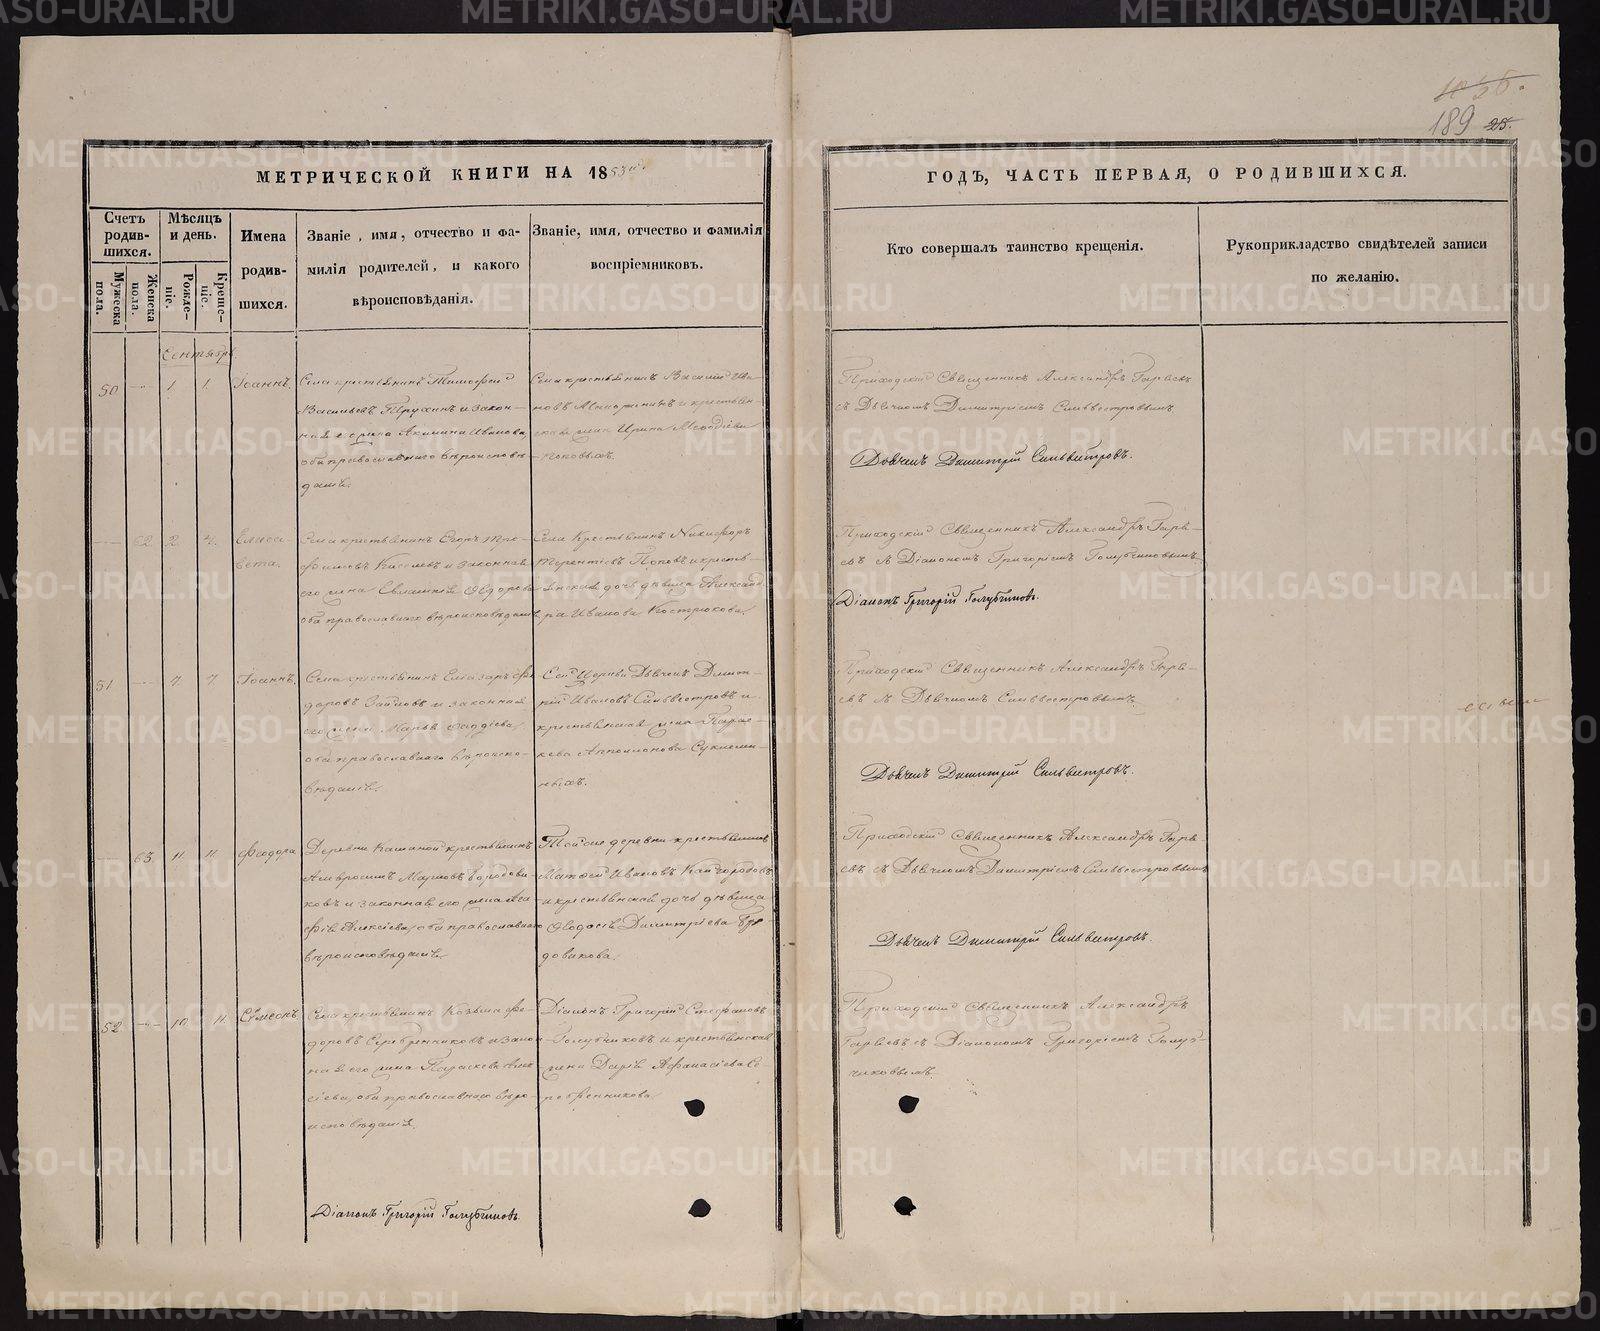 189 25.
МЕТРИЧЕСКОЙ КНИГИ НА 1853й
ГОДЪ, ЧАСТЬ ПЕРВАЯ, О РОДИВШИХСЯ.
Счетъ родив-шихся.
Мужеска пола.
Женска пола.
Мѣсяцъ и день.
Рожде-ніе.
Креще-ніе.
Имена родив-шихся.
Званіе, имя, отчество и фа-
милія родителей, и какого
вѣроисповѣданія.
Званіе, имя, отчество и фамилія
воспріемниковъ.
Кто совершалъ таинство крещенія.
Рукоприкладство свидѣтелей записи
по желанію.
Сентябрь
50 1. 1. Іоаннъ.
Села крестьянинъ Тимофей
Васильевъ Трухинъ и закон-
ная его жена Акилина Иванова,
оба православнаго вѣроисповѣ-
данія.
Села крестьянинъ Василій Ива-
новъ и крестьян-
ская жена Ирина
Приходскій Священникъ Александръ
съ Дьячкомъ Димитріемъ Сильвестровымъ.
Дьячекъ Димитрій Сильвестровъ.
62 2. 4. Елиса-
вета.
Села крестьянинъ Егоръ Тро-
фимовъ Киселевъ и законная
его жена Евлампія Ѳедорова
оба православнаго вѣроисповѣданія
Села Крестьянинъ Никифоръ
Терентіевъ Поповъ и кресть-
янская дочь дѣвица Александ-
ра Иванова Кострюкова.
Приходскій Священникъ Александръ
съ Діакономъ Григоріемъ Голубчиковымъ.
Діаконъ Григорій Голубчиковъ.
51 7. 7. Іоаннъ.
Села крестьянинъ Елеазаръ Фе-
доровъ и законная
его жена Марья
оба православнаго вѣроиспо-
вѣданія.
Сей Церкви Дьячекъ Димит-
рій Ивановъ Сильвестровъ и
крестьянская жена Парас-
кева
ныхъ.
Приходскій Священникъ Александръ
съ Дьячкомъ Сильвестровымъ.
Дьячекъ Димитрій Сильвестровъ.
63. 11. 11. Феодора
Деревни крестьянинъ
Амвросій Марковъ Бородови-
ковъ и законная его жена
Алексіева, оба православнаго
вѣроисповѣданія.
Той же деревни крестьянинъ
Матфей Ивановъ Кайгородовъ
и крестьянская дочь дѣвица
Ѳеодосія Димитріева Боро-
довикова.
Приходскій Священникъ Александръ
съ Дьячкомъ Димитріемъ Сильвестровымъ
Дьячекъ Димитрій Сильвестровъ.
52 10. 11. Сѷмеонъ.
Села крестьянинъ Козьма Фе-
доровъ Серебренниковъ и закон-
ная его жена Параскева Алек-
сіева, оба православнаго вѣро-
исповѣданія.
Діаконъ Григорій Стефановъ
Голубчиковъ и крестьянская
жена Дарія Афанасіева Се-
ребренникова.
Приходскій Священникъ Александръ
съ Діакономъ Григоріемъ Голуб-
чиковымъ.
Діаконъ Григорій Голубчиковъ.
METRIKI.GASO-URAL.RU